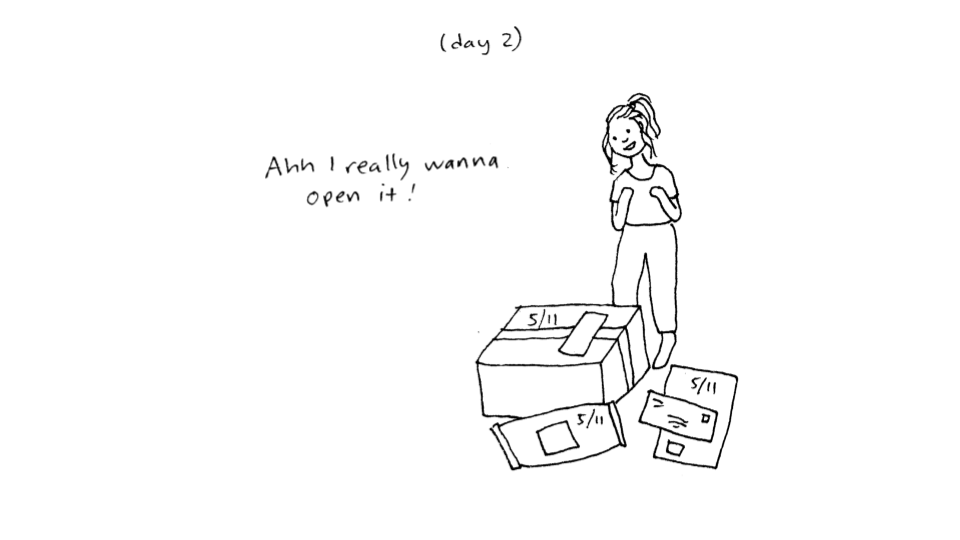 (day 2)
Ahh I really wanna
open it!
5/11
5/11
5/11